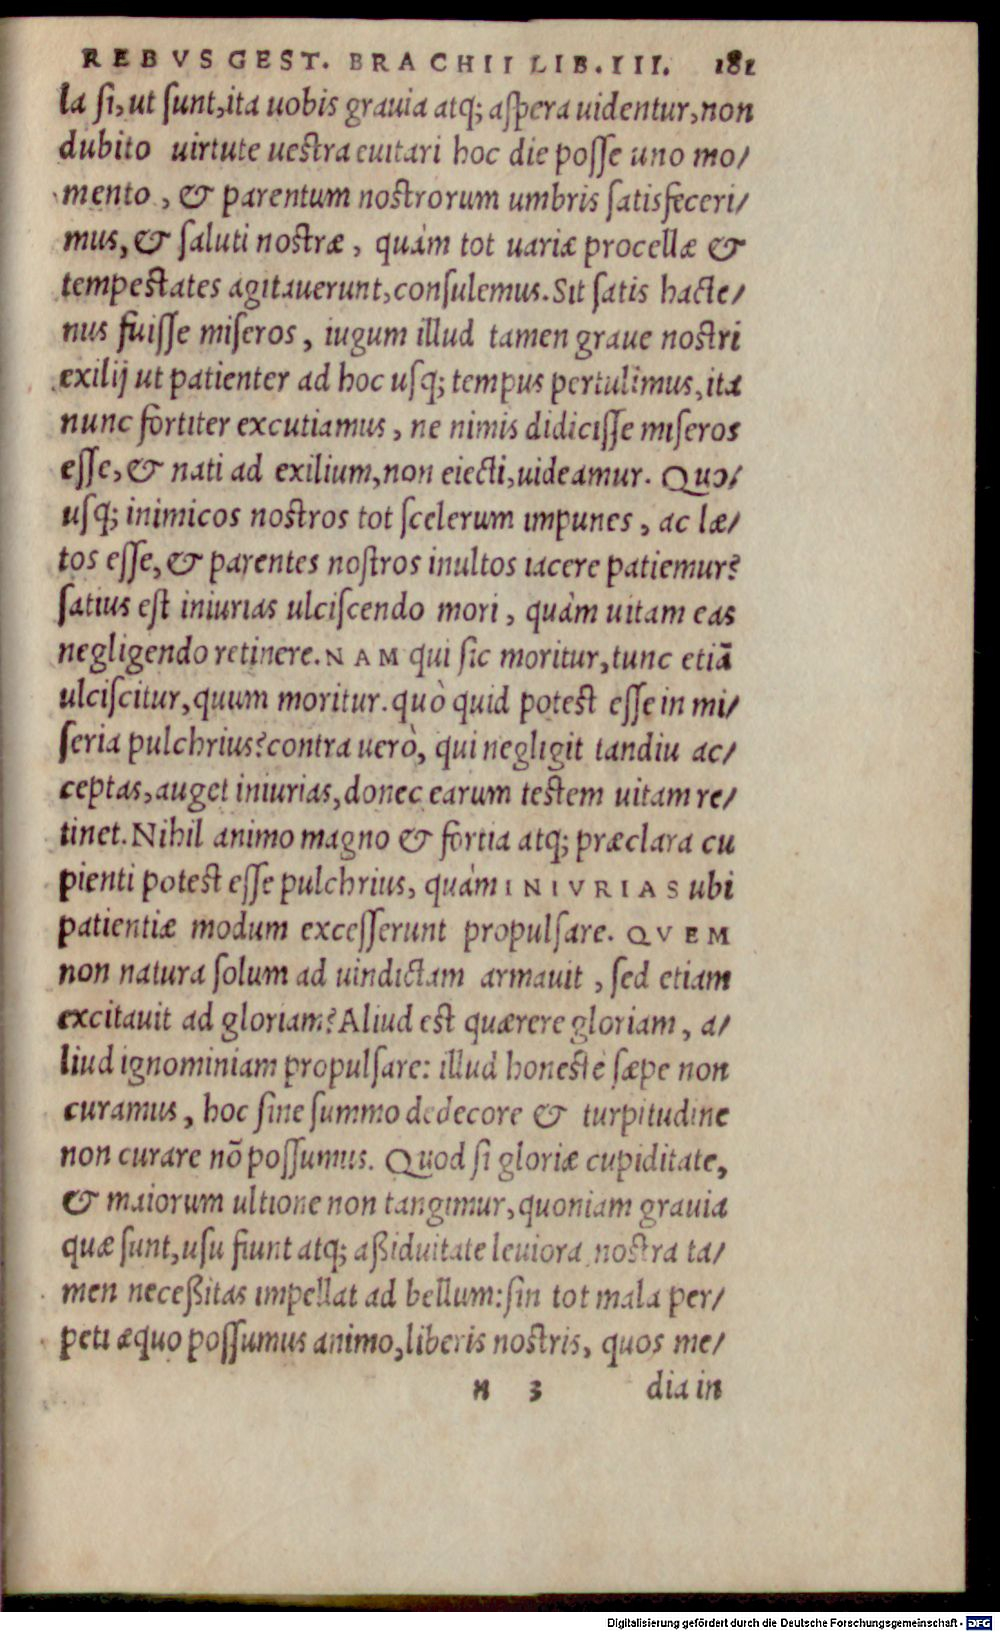 REBVS GEST. BRACHII LIB. III. 181
la si, ut sunt, ita uobis grauia atq; aspera uidentur, non
dubito uirtute uestra euitari hoc die posse uno mo/
mento, & parentum nostrorum umbris satisfeceri/
mus, & saluti nostræ, quàm tot uariæ procellæ &
tempestates agitauerunt, consulemus. Sit satis hacte/
nus fuisse miseros, iugum illud tamen graue nostri
exilij ut patienter ad hoc usq; tempus pertulimus, ita
nunc fortiter excutiamus, ne nimis didicisse miseros
esse, & nati ad exilium, non eiecti, uideamur. Quo/
usq; inimicos nostros tot scelerum impunes, ac læ/
tos esse, & parentes nostros inultos iacere patiemur?
satius est iniurias ulciscendo mori, quàm uitam eas
negligendo retinere. NAM qui sic moritur, tunc etiã
ulciscitur, quum moritur. quò quid potest esse in mi/
seria pulchrius? contra uerò, qui negligit tandiu ac/
ceptas, auget iniurias, donec earum testem uitam re/
tinet. Nihil animo magno & fortia atq; præclara cu
pienti potest esse pulchrius, quàm INIVRIAS ubi
patientiæ modum excesserunt propulsare. QVEM
non natura solum ad uindictam armauit, sed etiam
excitauit ad gloriam? Aliud est quærere gloriam, a/
liud ignominiam propulsare: illud honestè sæpe non
curamus, hoc sine summo dedecore & turpitudine
non curare nõ possumus. Quod si gloriæ cupiditate,
& maiorum ultione non tangimur, quoniam grauia
quæ sunt, usu fiunt atq; aßiduitate leuiora, nostra ta/
men neceßitas impellat ad bellum: sin tot mala per/
peti æquo possumus animo, liberis nostris, quos me/
n 3 dia in
Digitalisierung gefördert durch die Deutsche Forschungsgemeinschaft - DFG